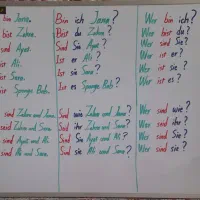 bin Jana.
Bin ich Jana?
Wer bin ich?
bist Zahra.
Bist du Zahra?
Wer bist du?
sind Ayat.
Sind Sie Ayat?
Wer sind Sie?
ist Ali.
Ist er Ali?
Wer ist er?
ist Sana.
Ist sie Sana?
Wer ist sie?
ist Sponge Bob.
Ist es Sponge Bob?
Wer ist es?
sind Zahra und Jana.
Sind wir Zahra und Jana?
Wer sind wir?
seid Zahra und Sana.
Seid ihr Zahra und Sana?
Wer seid ihr?
sind Ayat und Ali.
Sind Sie Ayat und Ali?
Wer sind Sie?
sind Ali und Sana.
Sind sie Ali und Sana?
Wer sind sie?